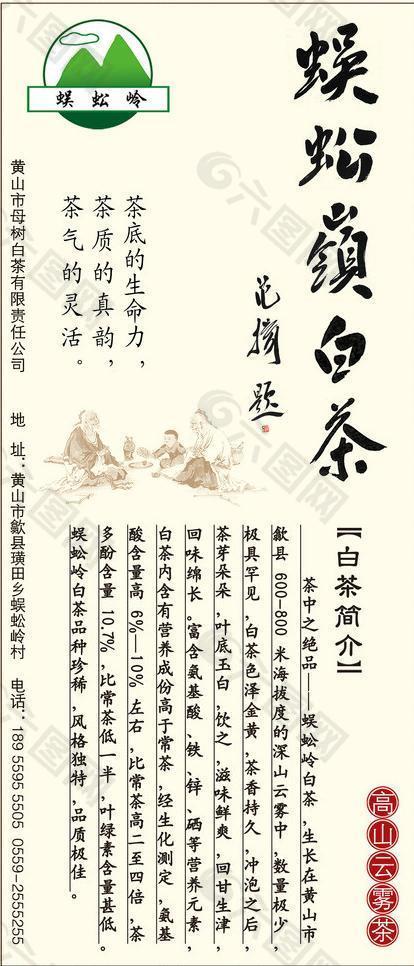 蜈蚣嶺白茶
范增题
蜈蚣岭
茶底的生命力，
茶质的真韵，
茶气的灵活。
【白茶简介】
茶中之绝品——蜈蚣岭白茶，生长在黄山市
歙县 600-800 米海拔度的深山云雾中，数量极少，
极具罕见，白茶色泽金黄，茶香持久，冲泡之后，
茶芽朵朵，叶底玉白，饮之，滋味鲜爽，回甘生津，
回味绵长。富含氨基酸、铁、锌、硒等营养元素，
白茶内含有营养成份高于常茶，经生化测定，氨基
酸含量高 6%—10% 左右，比常茶高二至四倍，茶
多酚含量 10.7%，比常茶低一半，叶绿素含量甚低。
蜈蚣岭白茶品种珍稀，风格独特，品质极佳。
高山云雾茶
黄山市母树白茶有限责任公司 地 址：黄山市歙县璜田乡蜈蚣岭村 电话：189 5595 5505 0559-2555255
六图网